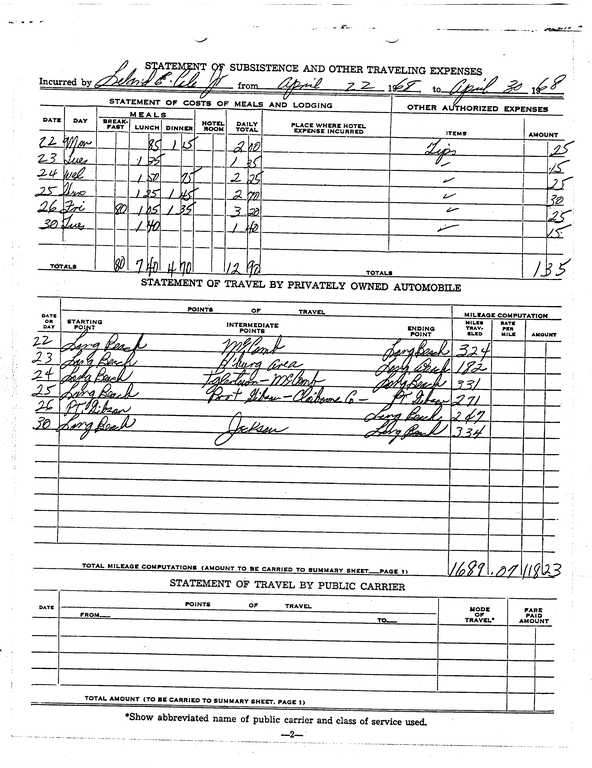 STATEMENT OF SUBSISTENCE AND OTHER TRAVELING EXPENSES
Incurred by Leland E. Cole Jr from April 22 1968 to April 30 1968
STATEMENT OF COSTS OF MEALS AND LODGING OTHER AUTHORIZED EXPENSES
MEALS
DATE DAY BREAK-FAST LUNCH DINNER HOTEL ROOM DAILY TOTAL PLACE WHERE HOTEL EXPENSE INCURRED ITEMS AMOUNT
22 Mon 85 1 15 2 00 Tips 25
23 Tues 1 35 1 35 15
24 Wed 1 50 75 2 25 ✓ 25
25 1 25 1 45 2 70 ✓ 30
26 Fri 80 1 05 1 35 3 20 ✓ 25
30 Tues 1 40 1 40 ✓ 15
TOTALS 80 7 40 4 70 12 90 TOTALS 1 35
STATEMENT OF TRAVEL BY PRIVATELY OWNED AUTOMOBILE
POINTS OF TRAVEL MILEAGE COMPUTATION
DATE OR DAY STARTING POINT INTERMEDIATE POINTS ENDING POINT MILES TRAV-ELED RATE PER MILE AMOUNT
22 Long Beach McComb Long Beach 324
23 Long Beach H'burg Area Long Beach 182
24 Long Beach McComb Long Beach 331
25 Long Beach Port Gibson - Claiborne Co - Pt. Gibson 271
26 Pt. Gibson Long Beach 247
30 Long Beach Jackson Long Beach 334
TOTAL MILEAGE COMPUTATIONS (AMOUNT TO BE CARRIED TO SUMMARY SHEET PAGE 1) 1689 .07 118 23
STATEMENT OF TRAVEL BY PUBLIC CARRIER
DATE POINTS OF TRAVEL MODE OF TRAVEL* FARE PAID AMOUNT
FROM TO
TOTAL AMOUNT (TO BE CARRIED TO SUMMARY SHEET. PAGE 1)
*Show abbreviated name of public carrier and class of service used.
—2—